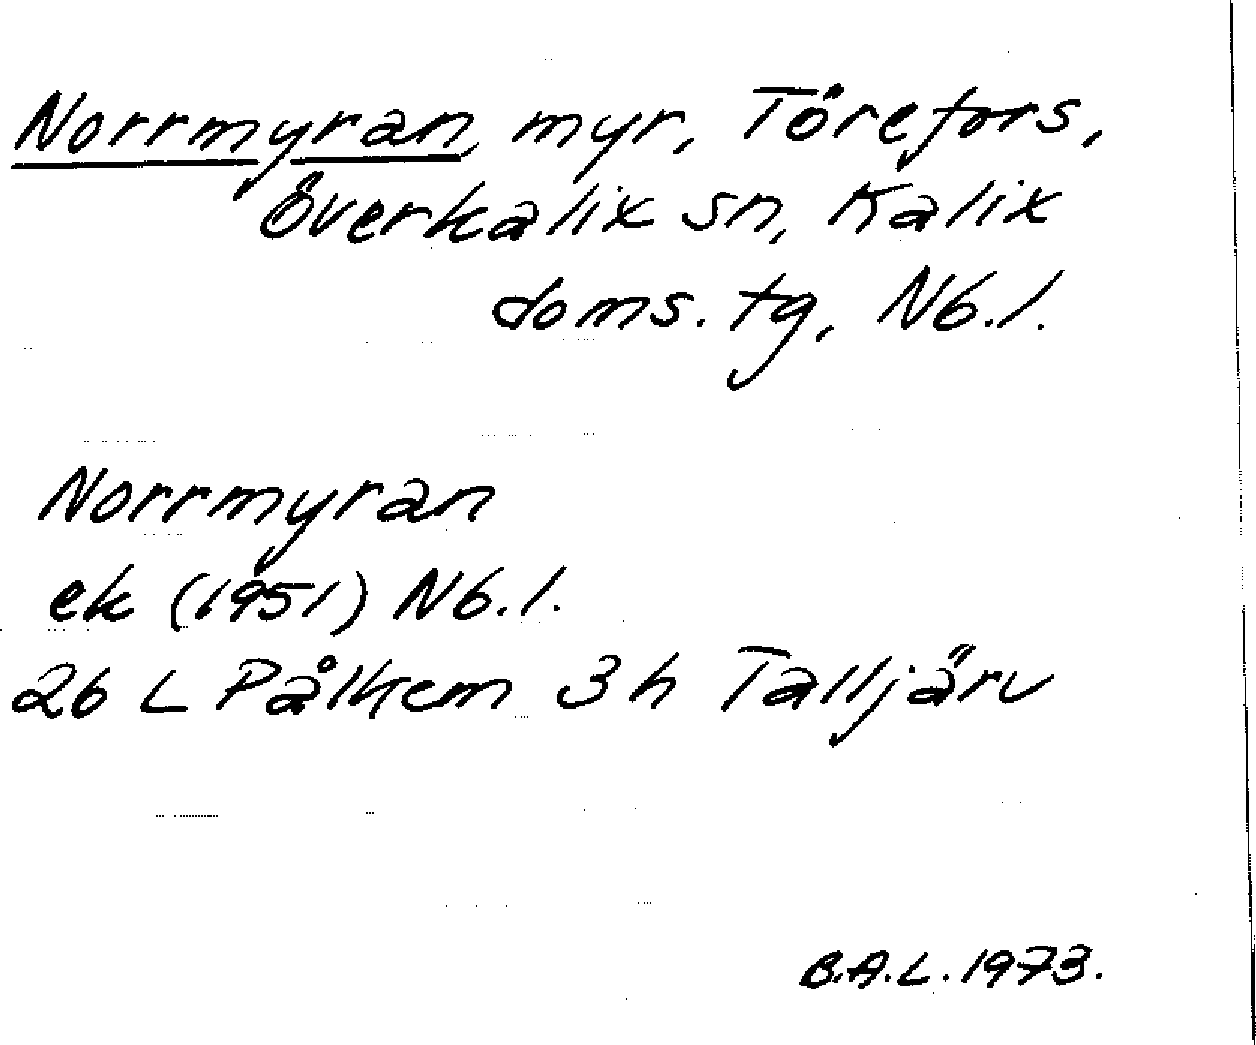 Norrmyran, myr, Törefors,
Överkalix sn, Kalix
doms. tg, Nb. l.
Norrmyran
ek (1951) Nb. l.
26 L Pålkem 3 h Talljärv
B.A.L. 1973.